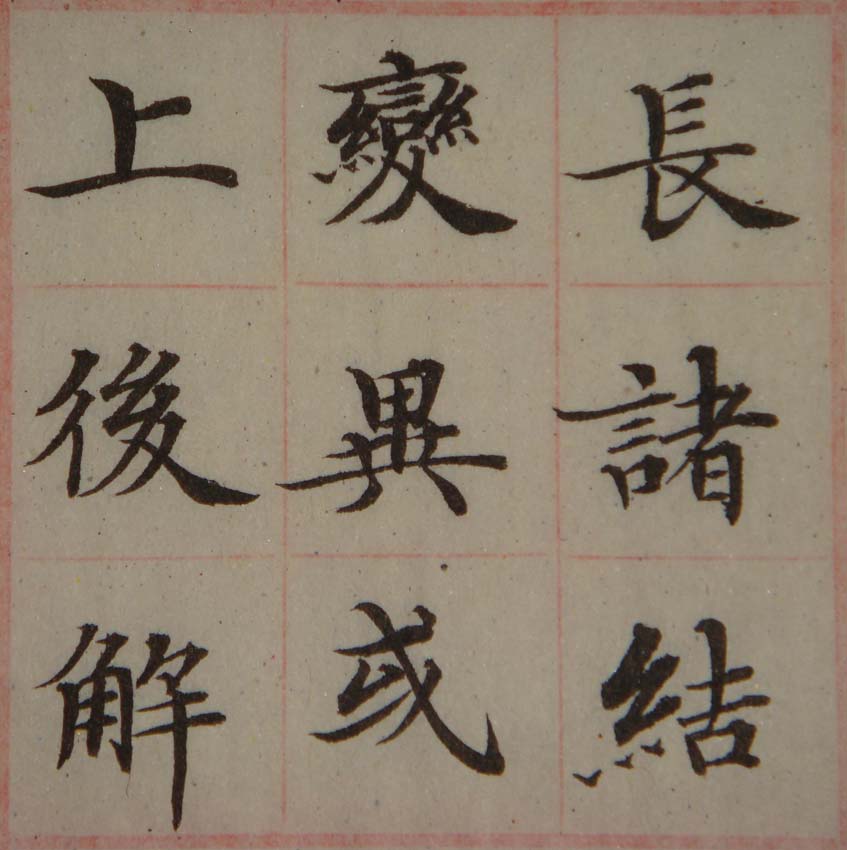 長諸結
變異或
上後解